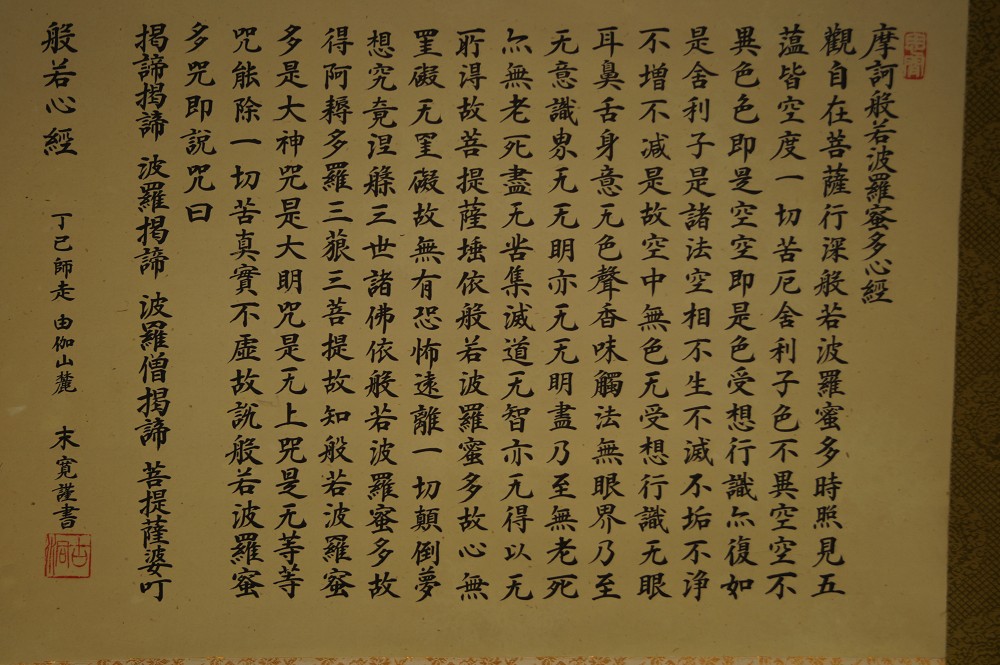 摩訶般若波羅蜜多心經
觀自在菩薩行深般若波羅蜜多時照見五
薀皆空度一切苦厄舍利子色不異空空不
異色色即是空空即是色受想行識亦復如
是舍利子是諸法空相不生不滅不垢不浄
不増不减是故空中無色无受想行識无眼
耳鼻舌身意无色聲香味觸法無眼界乃至
无意識界无无明亦无无明盡乃至無老死
亦無老死盡无苦集滅道无智亦无得以无
所淂故菩提薩埵依般若波羅蜜多故心無
罣礙无罣礙故無有恐怖遠離一切顛倒夢
想究竟涅槃三世諸佛依般若波羅蜜多故
得阿耨多羅三藐三菩提故知般若波羅蜜
多是大神咒是大明咒是无上咒是无等等
咒能除一切苦真實不虛故說般若波羅蜜
多咒即說咒曰
揭諦揭諦 波羅揭諦 波羅僧揭諦 菩提薩婆訶
般若心經 丁巳師走 由伽山麓 末寛謹書